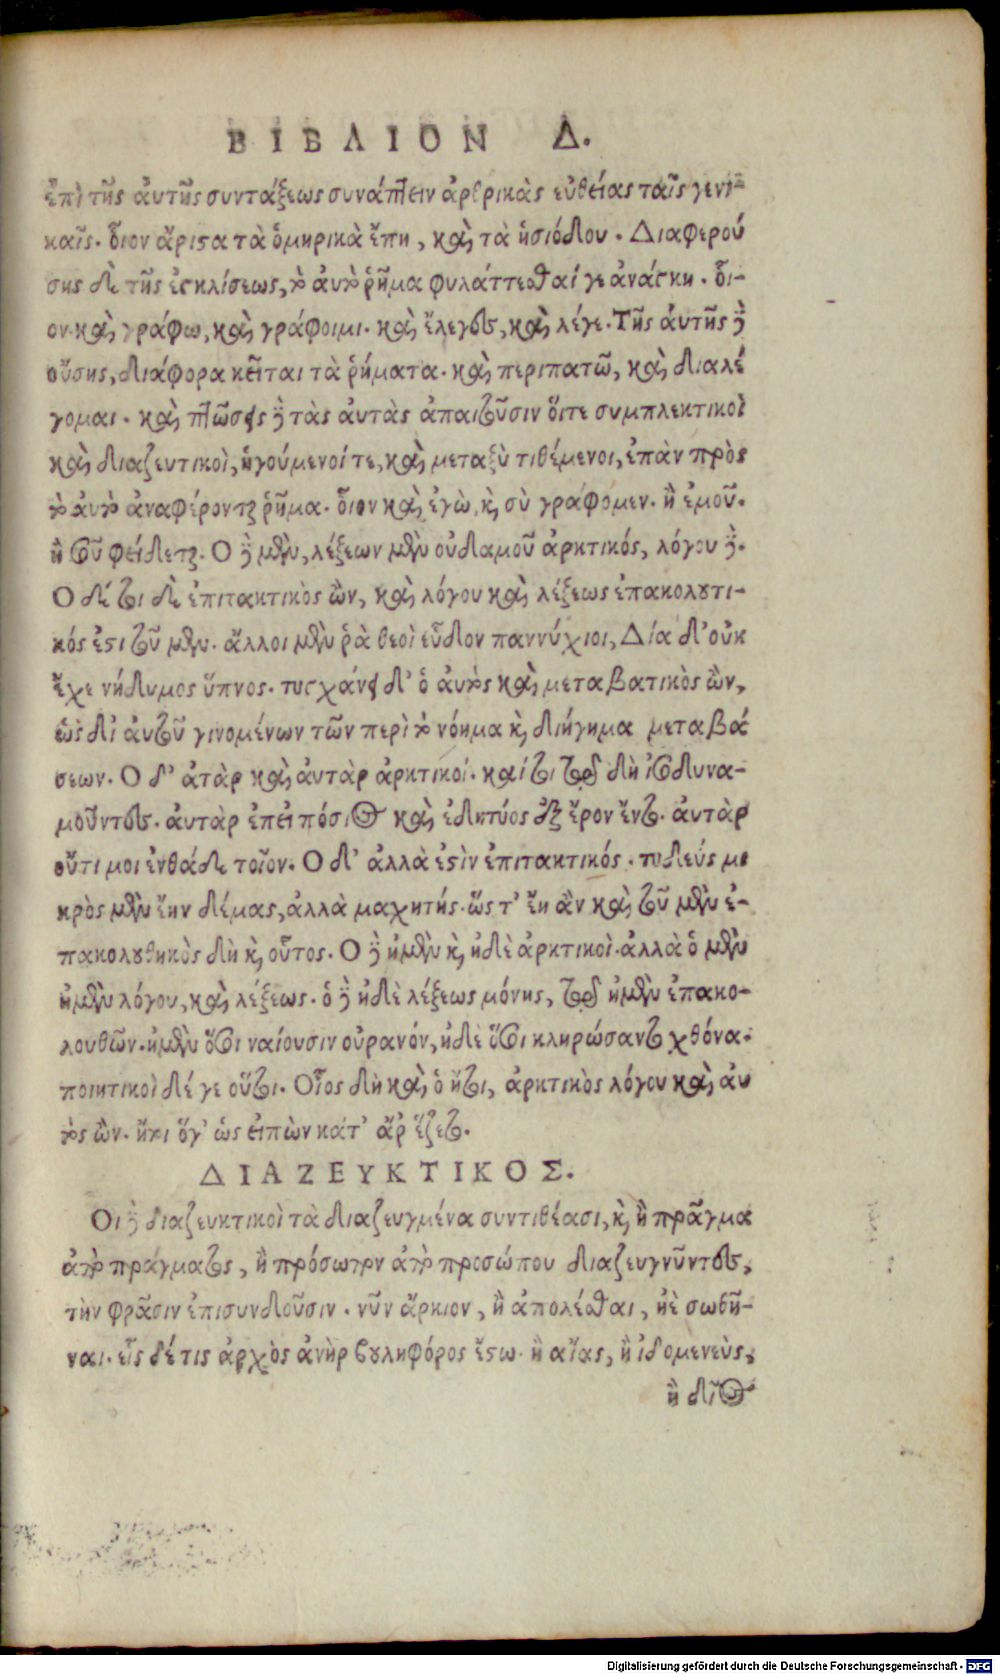 ΒΙΒΛΙΟΝ Δ.
ἐπὶ τῆς ἀυτῆς συντάξεως συνάπτειν ἀρθρικὰς εὐθείας ταῖς γενι-
καῖς. ὃιον ἄριστα τὰ ὁμηρικὰ ἔπη, καὶ τὰ ἡσιόδου. Διαφερού
σης δὲ τῆς ἐγκλίσεως, τὸ ἀυτὸ ῥῆμα φυλάττεσθαί γε ἀνάγκη. ὃι-
ον καὶ γράφω, καὶ γράφοιμι. καὶ ἔλεγες, καὶ λέγε. Τῆς ἀυτῆς δὲ
οὔσης, διάφορα κεῖται τὰ ῥήματα. καὶ περιπατῶ, καὶ διαλέ
γομαι. καὶ πτώσεις δὲ τὰς ἀυτὰς ἀπαιτοῦσιν ὅιτε συμπλεκτικοὶ
καὶ διαζευτικοὶ, ἡγούμενοί τε, καὶ μεταξὺ τιθέμενοι, ἐπὰν πρὸς
τὸ ἀυτὸ ἀναφέρονται ῥῆμα. ὃιον καὶ ἐγὼ, καὶ σὺ γράφομεν. ἢ ἐμοῦ.
ἢ σοῦ φείδεται. Ο δὲ μὲν, λέξεων μὲν οὐδαμοῦ ἀρκτικός, λόγου δέ.
Ο δέ τοι δὲ ἐπιτακτικὸς ὢν, καὶ λόγου καὶ λέξεως ἐπακολουτι-
κός ἐστι τοῦ μέν. ἄλλοι μὲν ῥὰ θεοὶ εὗδον παννύχιοι, Δία δ' οὐκ
ἔχε νήδυμος ὕπνος. τυγχάνει δ' ὁ ἀυτὸς καὶ μεταβατικὸς ὢν,
ὡς δἰ ἀυτοῦ γινομένων τῶν περὶ τὸ νόημα καὶ διήγημα μεταβά
σεων. Ο δ' ἀτὰρ καὶ ἀυτὰρ ἀρκτικοί. καί τοι τῷ δὲ δὴ ἰσοδυνα-
μοῦντες. ἀυτὰρ ἐπεὶ πόσιος καὶ ἐδητύος ἐξ ἔρον ἕντο. ἀυτὰρ
οὔτι μοι ἐνθάδε τοῖον. Ο δ' ἀλλὰ ἐστὶν ἐπιτακτικός. τυδεύς μι
κρὸς μὲν ἔην δέμας, ἀλλὰ μαχητής. ὥς τ' ἔη ἂν καὶ τοῦ μὲν ἐ-
πακολουθηκὸς δὴ καὶ οὗτος. Ο δὲ ἠμὲν καὶ ἠδὲ ἀρκτικοὶ. ἀλλὰ ὁ μὲν
ἠμὲν λόγου, καὶ λέξεως. ὁ δὲ ἠδὲ λέξεως μόνης, τῷ ἠμὲν ἐπακο-
λουθῶν. ἠμὲν ὅσοι ναίουσιν οὐρανόν, ἠδὲ ὅσοι κληρώσαντο χθόνα.
ποιητικοὶ δέ γε οὗτοι. Οἷος δὴ καὶ ὁ ἤτοι, ἀρκτικὸς λόγου καὶ ἀυ
τὸς ὢν. ἤτοι ὅγ' ὡς εἰπὼν κάτ' ἄρ ἕζετο.
ΔΙΑΖΕΥΚΤΙΚΟΣ.
Οι δὲ διαζευκτικοὶ τὰ διαζευγμένα συντιθέασι, καὶ ἢ πρᾶγμα
ἀπὸ πράγματος, ἢ πρόσωπον ἀπὸ προσώπου διαζευγνῦντες,
τὴν φρᾶσιν ἐπισυνδοῦσιν. νῦν ἄρκιον, ἢ ἀπολέσθαι, ἠὲ σωθῆ-
ναι. εἷς δέ τις ἀρχὸς ἀνὴρ βουληφόρος ἔστω. ἢ αἴας, ἢ ἰδομενεὺς,
ἢ δῖος
Digitalisierung gefördert durch die Deutsche Forschungsgemeinschaft - DFG